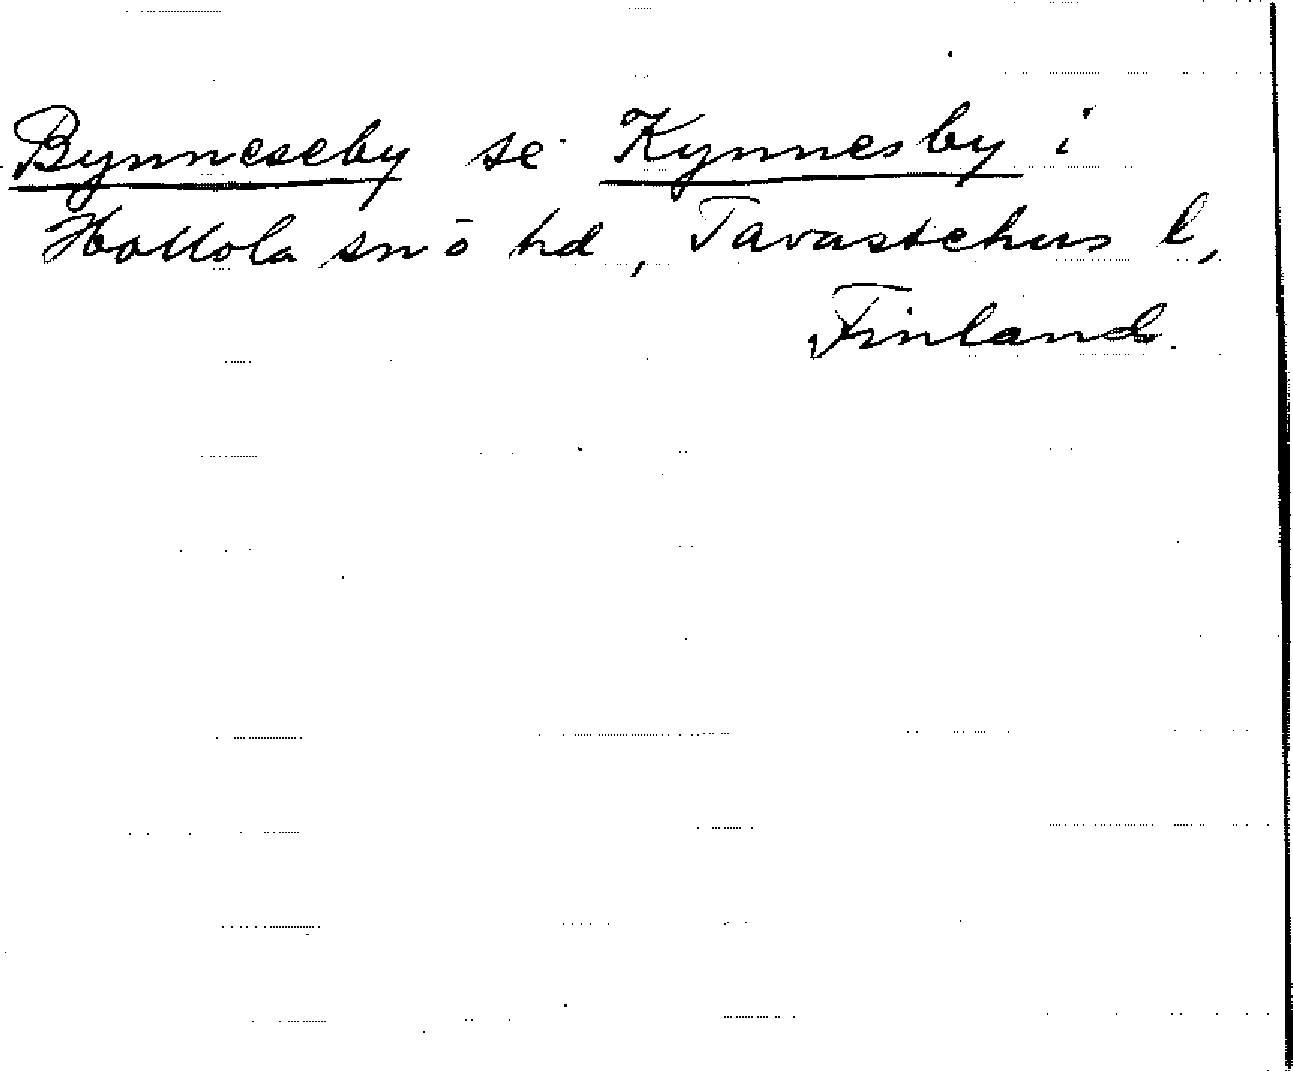 Bynneseby se Kynnesby i
Hollola sn o hd, Tavastehus l,
Finland.